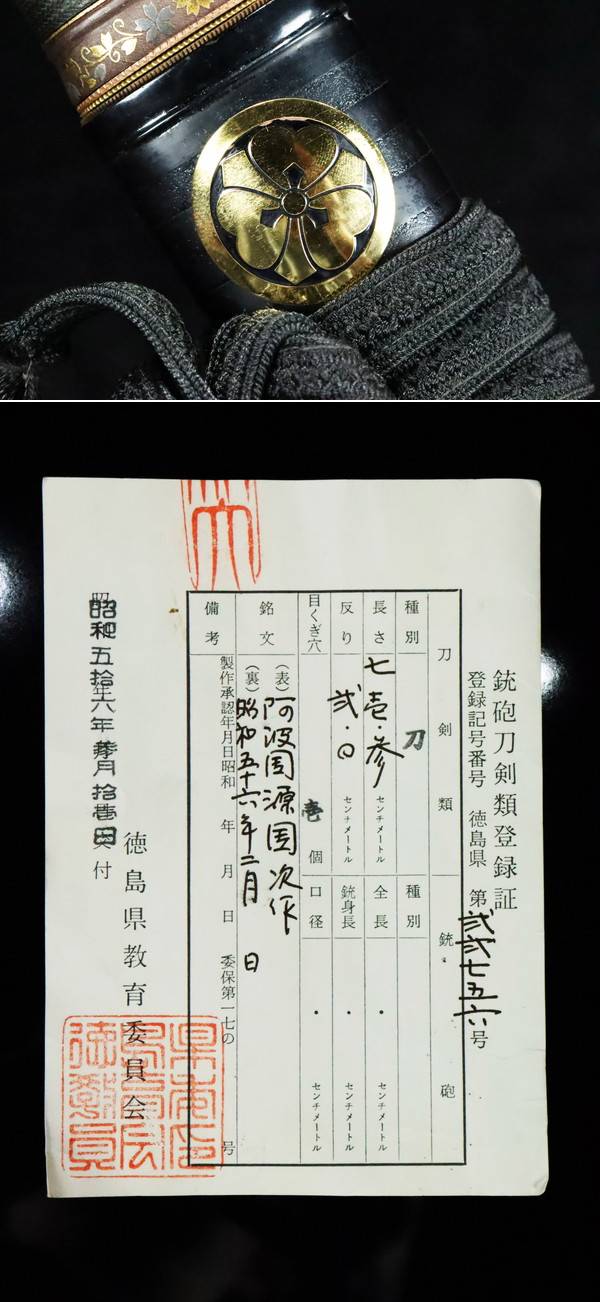 銃砲刀剣類登録証
登録記号番号 徳島県 第弐弐七五六号
刀剣類 銃砲
種別 刀 種別
長さ 七壱・参 センチメートル 全長 ・ センチメートル
反り 弐・〇 センチメートル 銃身長 ・ センチメートル
目くぎ穴 壱個 口径 ・ センチメートル
銘文 (表) 阿波国源国次作
(裏) 昭和五十六年二月 日
備考 製作承認年月日昭和 年 月 日 委保第一七の 号
昭和五拾六年参月拾壱日付
徳島県教育委員会